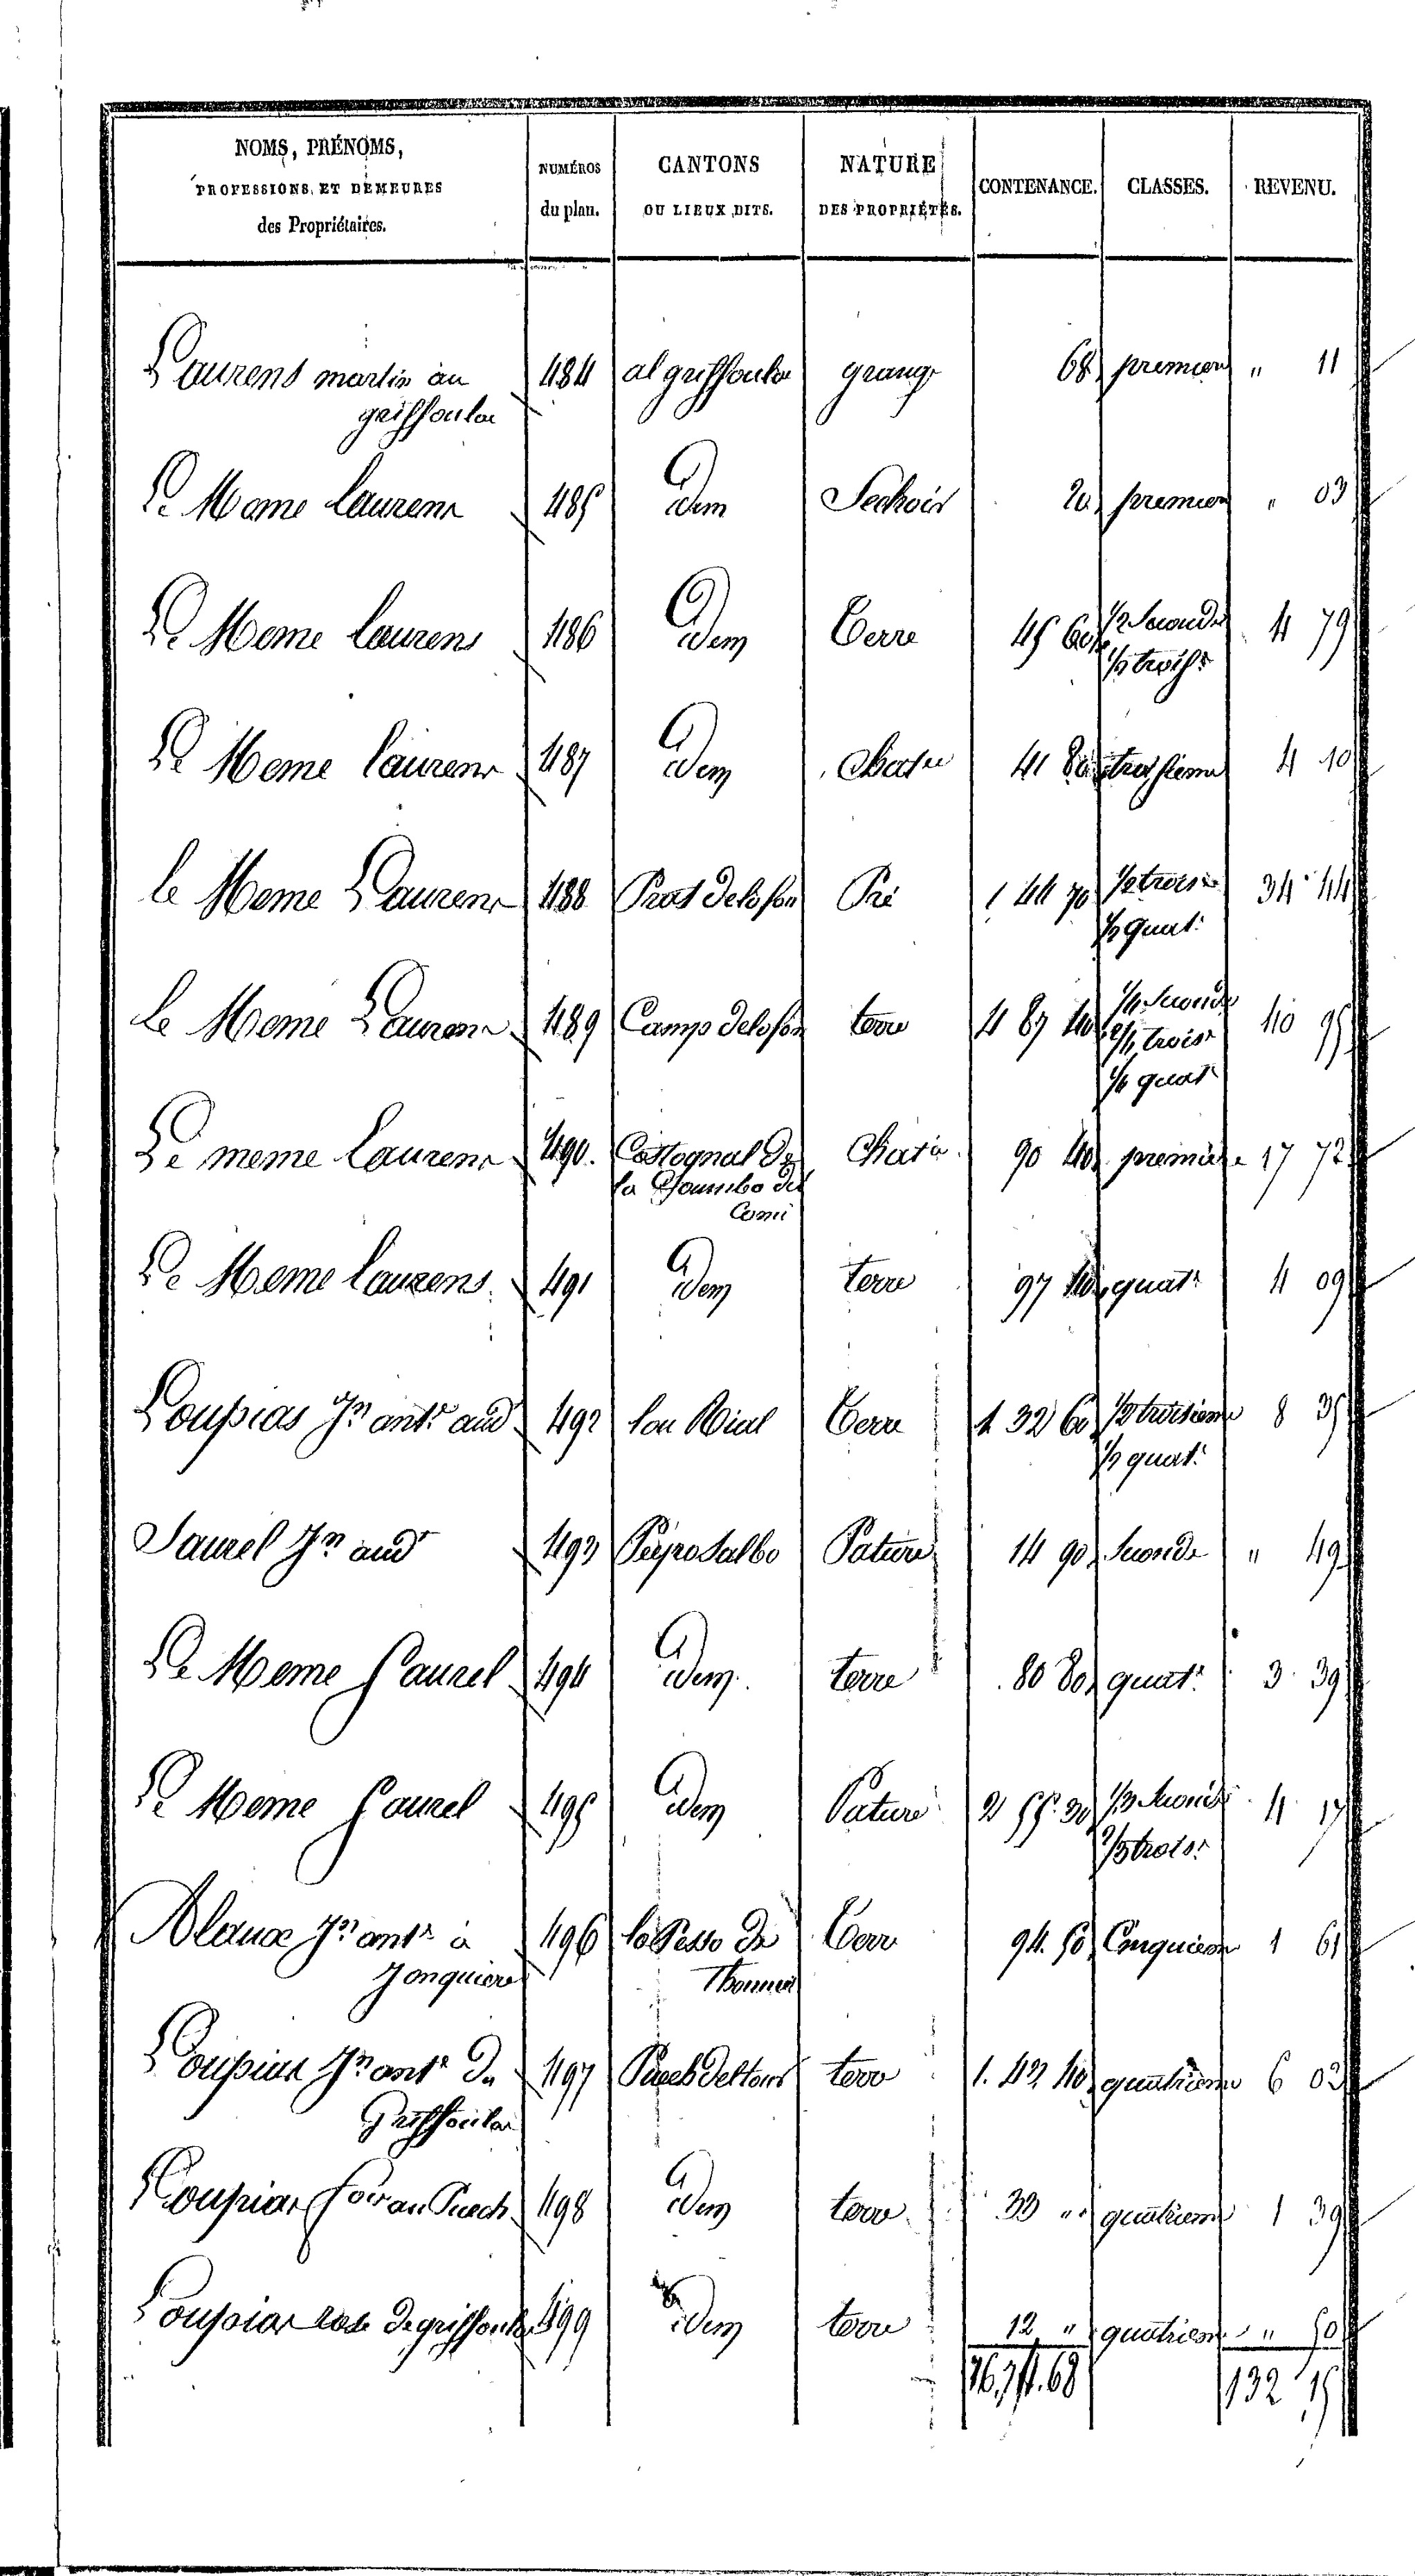 NOMS, PRÉNOMS,
PROFESSIONS, ET DEMEURES
des Propriétaires.
NUMÉROS
du plan.
CANTONS
OU LIEUX DITS.
NATURE
DES PROPRIÉTÉS.
CONTENANCE.
CLASSES.
REVENU.
Laurens martin au 484 al griffoulas grange 68 premiere " 11
griffoulas
Le Meme Laurens 485 Idem Sechoir 20 premiere " 03
Le Meme Laurens 486 Idem Terre 45 60 1/2 Seconde 4 79
1/2 troisr
Le Meme Laurens 487 Idem 41 80 troisieme 4 10
le Meme Laurens 488 Prat delofon Pré 1 44 70 1/2 trois 34 44
1/2 quat.
Le Meme Laurens 489 Camp delofon terre 4 87 40 1/4 Seconde 40 95
2/4 troisr
1/4 quat
Le meme Laurens 490. Castognal De 90 40 premiere 17 72
la Coumbo del
Cami
Le Meme Laurens 491 Idem terre 97 40 quatr 4 09
Loupias Jn antr aud 492 lou Rial Terre 1 32 60 1/2 troisieme 8 35
1/2 quat.
Saurel Jn aud 493 Peyrosalbo Pature 14 90 Seconde " 49
Le Meme Saurel 494 Idem. terre 80 80 quatr 3 39
Le Meme Saurel 495 Idem Pature 2 55 30 1/3 Seconde 4 17
2/3 troisr
Alaux Jn antr à 496 la Pesso De Terre 94. 50 Cinquieme 1 61
Jonquiere
Loupias Jn antr De 497 Puech Deltour terre 1. 42 40 quatrieme 6 03
Griffoulas
Loupias au Puech 498 Idem terre 33 " quatrieme 1 39
Loupias De griffoulas 499 Idem terre 12 " quatrieme " 50
68
132 15